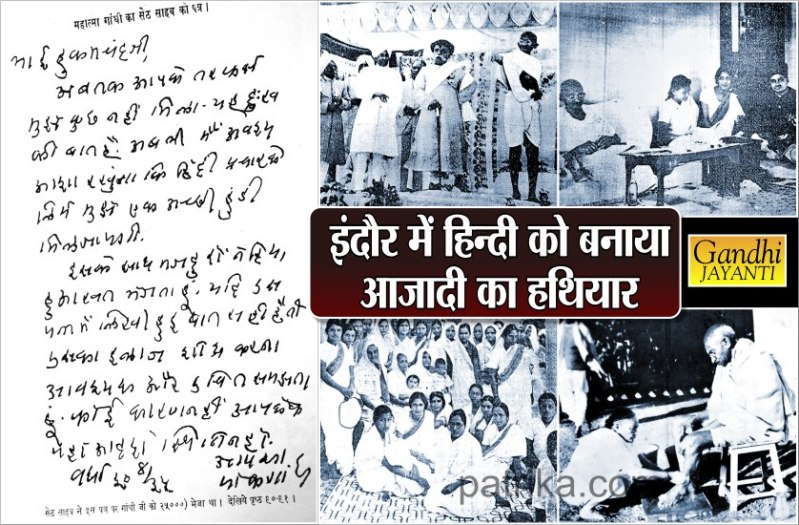 महात्मा गांधी का सेठ साहब को पत्र।
भाई हुकमचंदजी,
अब तक आपके तरफसे
मुझे कुछ नहीं मिला. यह दुःख
की बात है. अब भी मैं अवश्य
आशा रखुंगा कि हिंदी प्रचारके
लिये मुझे एक अच्छी हुंडी
मिल जायगी.
इसके साथ मजदुरों ने दिया
हुआ खत भेजता हुं. यदि इस
खतमें लिखी हुई बात सही है तो
उसका इलाज शीघ्र करना
आवश्यक और उचित समझता
हुं. कोई कारण नहीं आपके
आपका
सेठ साहब ने इस पत्र पर गांधी जी को २५०००) भेजा था। देखिये पृष्ठ ९०-९१।
इंदौर में हिन्दी को बनाया
आजादी का हथियार
Gandhi
JAYANTI
patrika.com